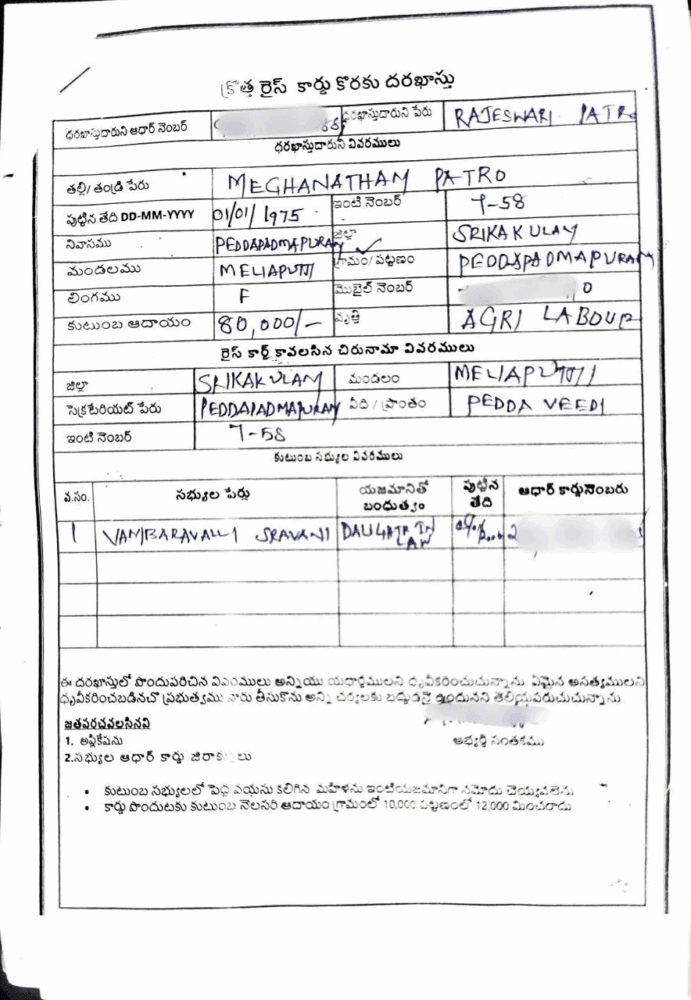 క్రొత్త రైస్ కార్డు కొరకు దరఖాస్తు
ధరఖాస్తుదారుని ఆధార్ నెంబర్ ధరఖాస్తుదారుని పేరు RAJESWARI PATRO
ధరఖాస్తుదారుని వివరములు
తల్లి/ తండ్రి పేరు MEGHANATHAM PATRO
పుట్టిన తేది DD-MM-YYYY 01/01/1975 ఇంటి నెంబర్ 7-58
నివాసము PEDDAPADMAPURAM జిల్లా SRIKAKULAM
మండలము MELIAPUTTI గ్రామం/పట్టణం PEDDAPADMAPURAM
లింగము F మొబైల్ నెంబర్ 0
కుటుంబ ఆదాయం 80,000/- వృత్తి AGRI LABOUR
రైస్ కార్డ్ కావలసిన చిరునామా వివరములు
జిల్లా SRIKAKULAM మండలం MELIAPUTTI
సెక్రటేరియట్ పేరు PEDDAPADMAPURAM వీది / ప్రాంతం PEDDA VEEDI
ఇంటి నెంబర్ 7-58
కుటుంబ సభ్యుల వివరములు
వ.సం. సభ్యుల పేర్లు యజమానితో బంధుత్వం పుట్టిన తేది ఆధార్ కార్డునెంబరు
1 VAMBARAVALLI SRAVANI DAUGHTR IN LAW 2
ఈ దరఖాస్తులో పొందుపరిచిన వివరములు అన్నియు యధార్థములని ధృవీకరించుచున్నాను. ఏమైన అసత్యములని
ధృవీకరించబడినచో ప్రభుత్వము వారు తీసుకొను అన్ని చర్యలకు బద్దుడనై ఇందునని తెలియపరుచుచున్నాను.
జతపరచవలసినవి
1. అప్లికేషను అభ్యర్థి సంతకము
2.సభ్యుల ఆధార్ కార్డు జిరాక్సులు
• కుటుంబ సభ్యులలో పెద్ద వయసు కలిగిన మహిళను ఇంటియజమానిగా నమోదు చెయ్యవలెను
• కార్డు పొందుటకు కుటుంబ నెలసరి ఆదాయం గ్రామంలో 10,000 పట్టణంలో 12,000 మించరాదు